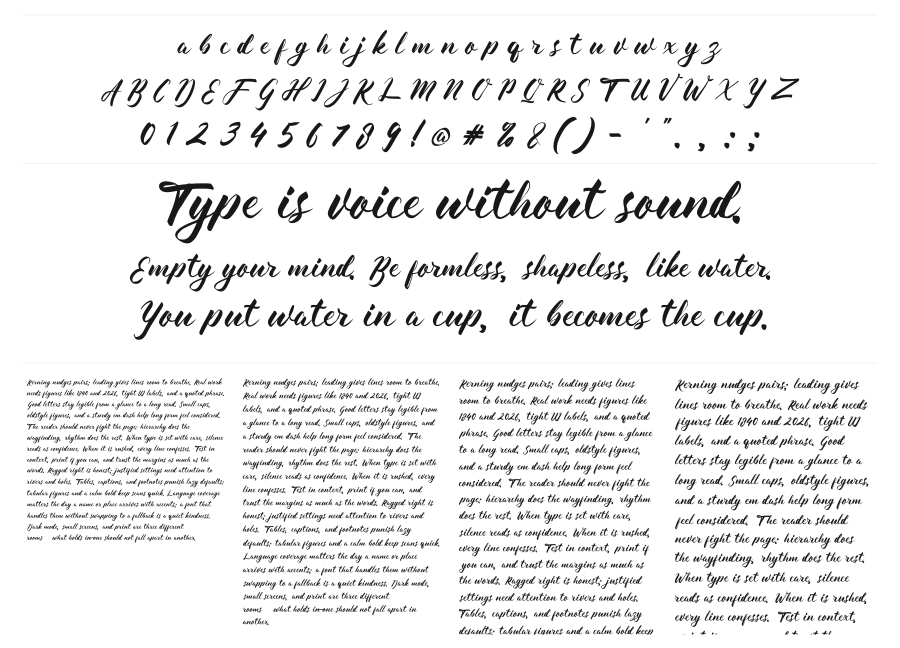 a b c d e f g h i j k l m n o p q r s t u v w x y z
A B C D E F G H I J K L M N O P Q R S T U V W X Y Z
0 1 2 3 4 5 6 7 8 9 ! @ # % & ( ) - ' " . , : ;
Type is voice without sound.
Empty your mind. Be formless, shapeless, like water.
You put water in a cup, it becomes the cup.
Kerning nudges pairs; leading gives lines room to breathe. Real work
needs figures like 1840 and 2026, tight UI labels, and a quoted phrase.
Good letters stay legible from a glance to a long read. Small caps,
oldstyle figures, and a sturdy em dash help long form feel considered.
The reader should never fight the page; hierarchy does the
wayfinding, rhythm does the rest. When type is set with care, silence
reads as confidence. When it is rushed, every line confesses. Test in
context, print if you can, and trust the margins as much as the
words. Ragged right is honest; justified settings need attention to
rivers and holes. Tables, captions, and footnotes punish lazy defaults;
tabular figures and a calm bold keep scans quick. Language coverage
matters the day a name or place arrives with accents; a font that
handles them without swapping to a fallback is a quiet kindness.
Dark mode, small screens, and print are three different
rooms what holds in one should not fall apart in another.
Kerning nudges pairs; leading gives lines room to breathe.
Real work needs figures like 1840 and 2026, tight UI
labels, and a quoted phrase. Good letters stay legible from
a glance to a long read. Small caps, oldstyle figures, and
a sturdy em dash help long form feel considered. The
reader should never fight the page; hierarchy does the
wayfinding, rhythm does the rest. When type is set with
care, silence reads as confidence. When it is rushed, every
line confesses. Test in context, print if you can, and
trust the margins as much as the words. Ragged right is
honest; justified settings need attention to rivers and
holes. Tables, captions, and footnotes punish lazy
defaults; tabular figures and a calm bold keep scans quick.
Language coverage matters the day a name or place
arrives with accents; a font that handles them without
swapping to a fallback is a quiet kindness. Dark mode,
small screens, and print are three different
rooms what holds in one should not fall apart in
another.
Kerning nudges pairs; leading gives lines
room to breathe. Real work needs figures like
1840 and 2026, tight UI labels, and a quoted
phrase. Good letters stay legible from a glance
to a long read. Small caps, oldstyle figures,
and a sturdy em dash help long form feel
considered. The reader should never fight the
page; hierarchy does the wayfinding, rhythm
does the rest. When type is set with care,
silence reads as confidence. When it is rushed,
every line confesses. Test in context, print if
you can, and trust the margins as much as
the words. Ragged right is honest; justified
settings need attention to rivers and holes.
Tables, captions, and footnotes punish lazy
defaults; tabular figures and a calm bold keep
Kerning nudges pairs; leading gives
lines room to breathe. Real work needs
figures like 1840 and 2026, tight UI
labels, and a quoted phrase. Good
letters stay legible from a glance to a
long read. Small caps, oldstyle figures,
and a sturdy em dash help long form
feel considered. The reader should
never fight the page; hierarchy does
the wayfinding, rhythm does the rest.
When type is set with care, silence
reads as confidence. When it is rushed,
every line confesses. Test in context,